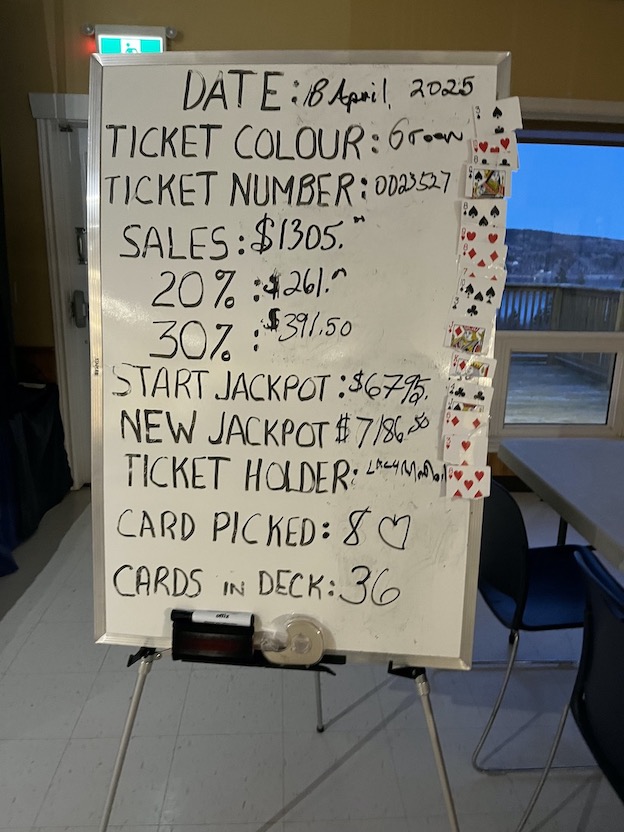 DATE: 18 April, 2025
TICKET COLOUR: Green
TICKET NUMBER: 0023527
SALES: $1305.
20% : $261.
30% : $391.50
START JACKPOT: $6795.
NEW JACKPOT $7186.50
TICKET HOLDER:
CARD PICKED: 8 ♡
CARDS IN DECK: 36